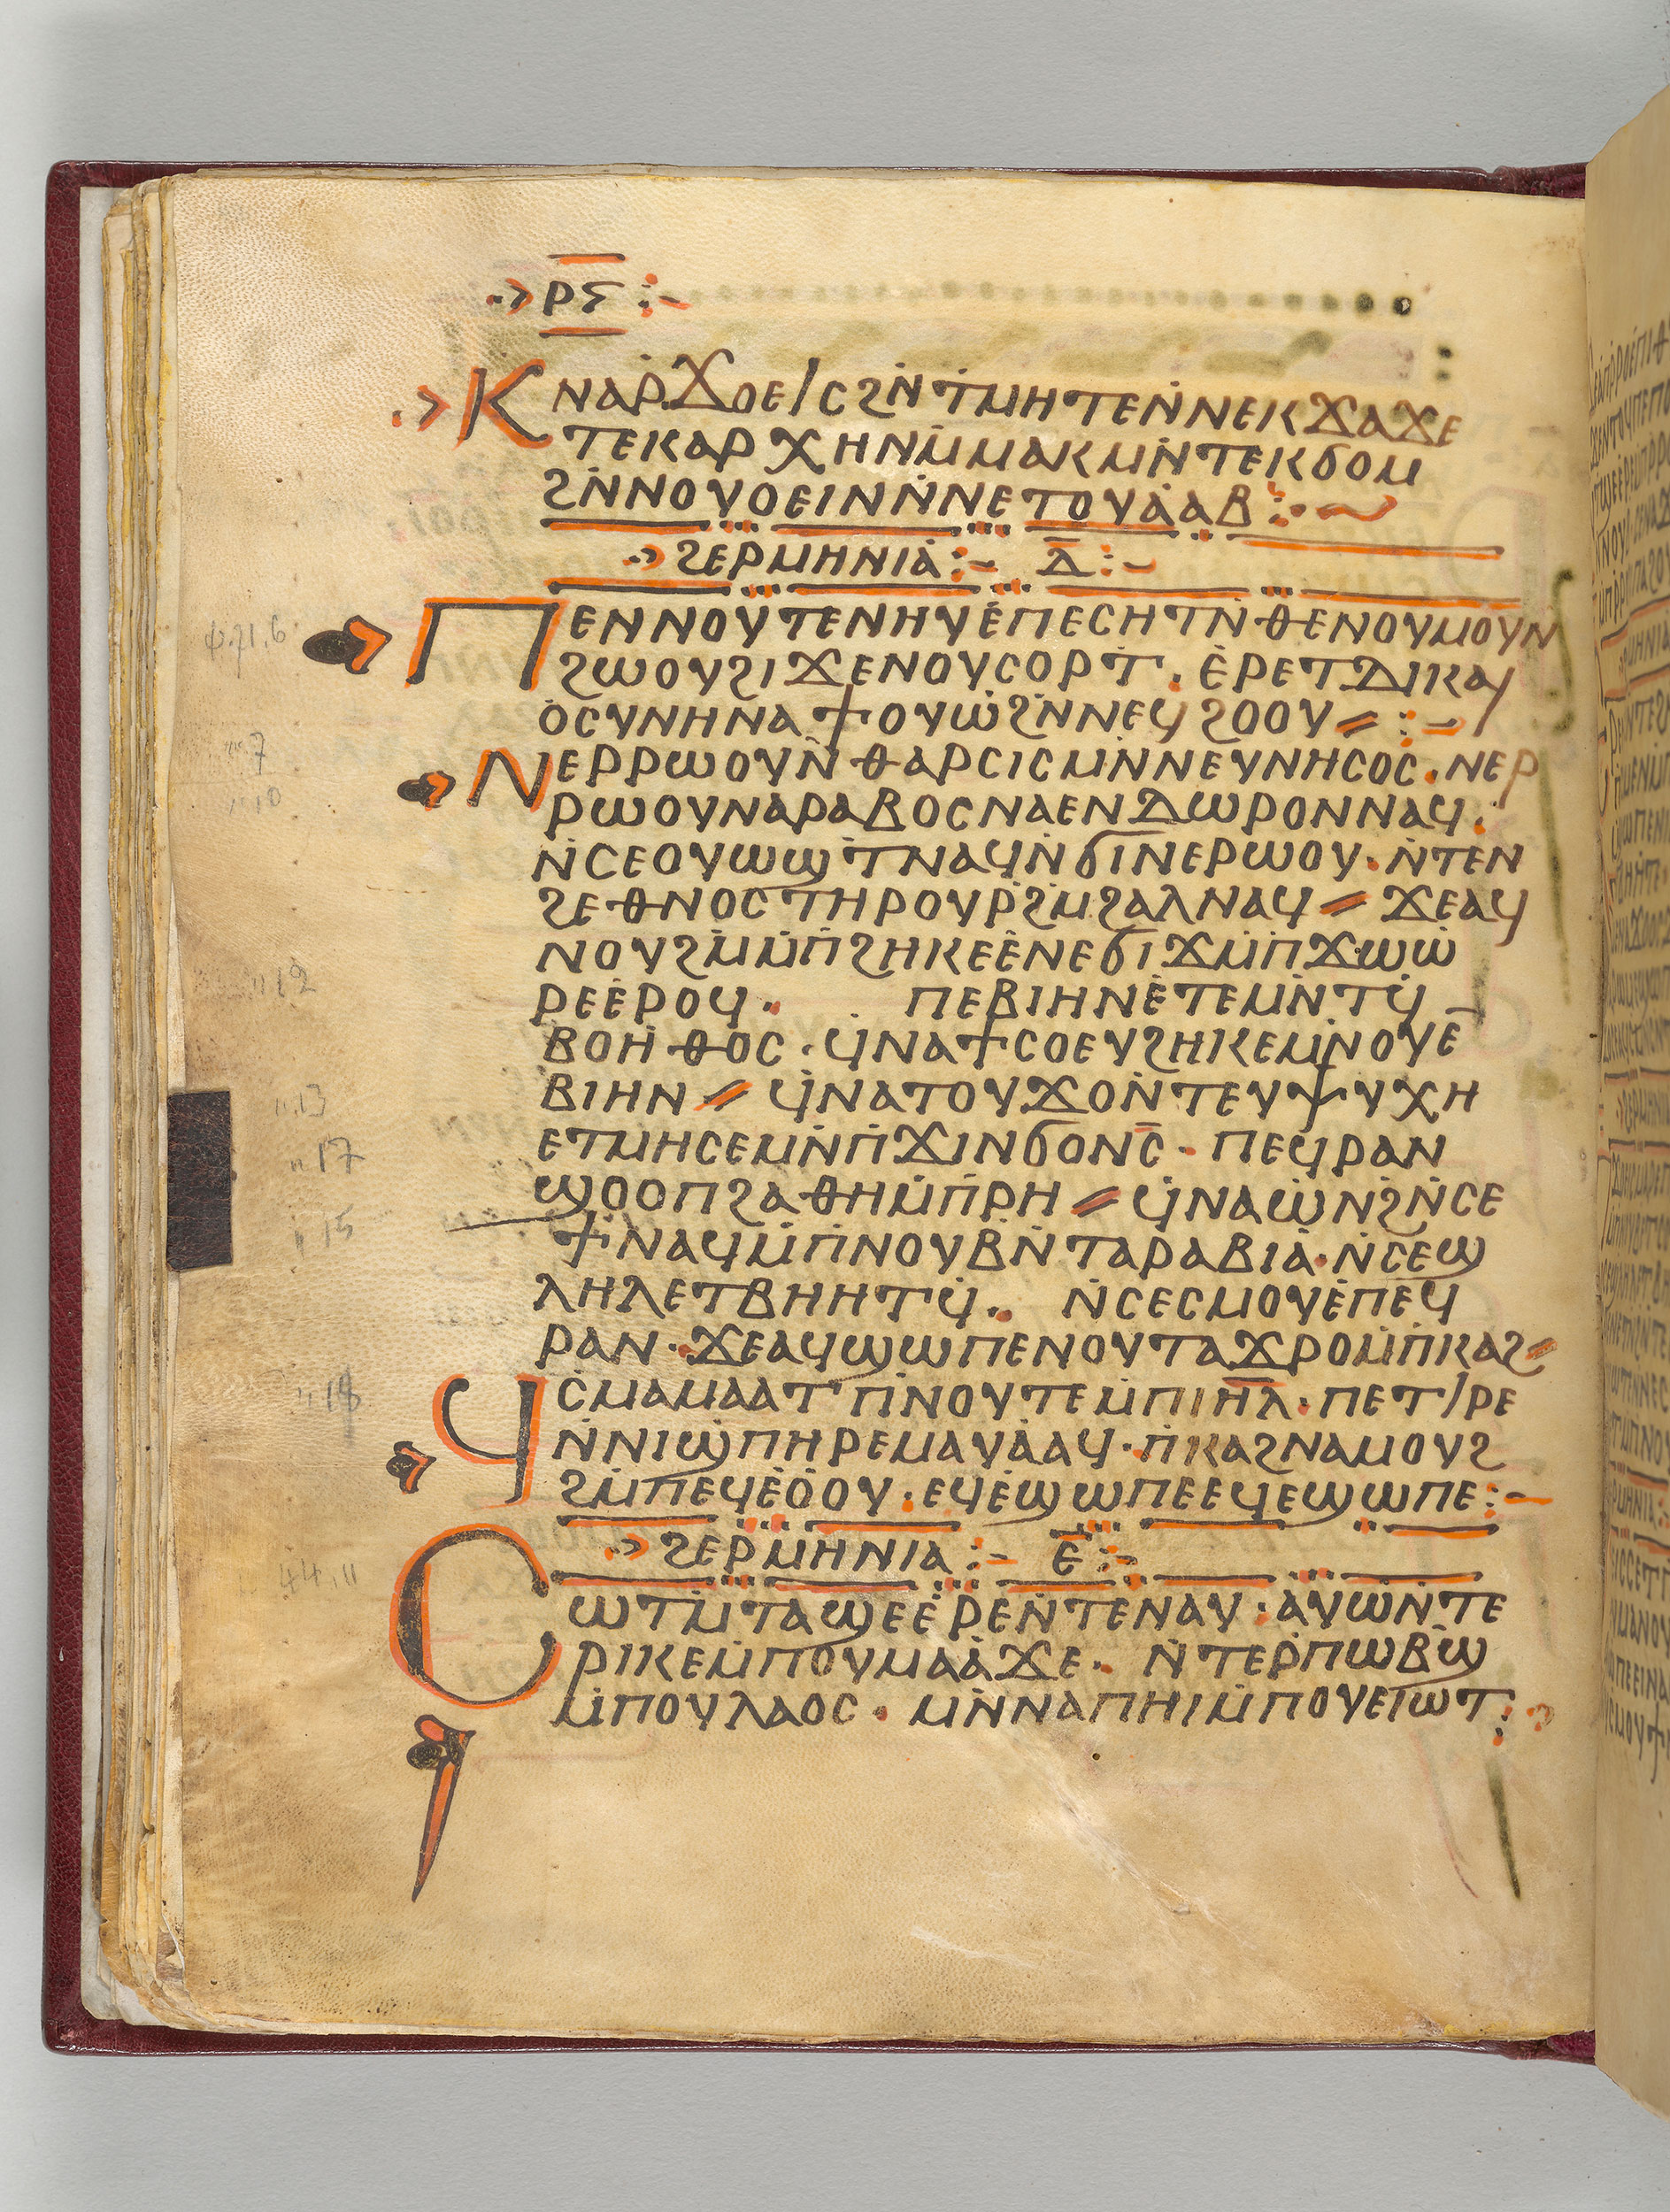 ⲣⲋ
ⲕⲛⲁⲣϫⲟⲉⲓⲥ ϩⲛ̇ⲧⲙⲏⲧⲉ ⲛ̇ⲛⲉⲕϫⲁϫⲉ
ⲧⲉⲕⲁⲣⲭⲏ ⲛⲙ̇ⲙⲁⲕ ⲙⲛ̇ⲧⲉⲕϭⲟⲙ
ϩⲛ̇ⲛⲟⲩⲟⲉⲓⲛ ⲛ̇ⲛⲉⲧⲟⲩⲁ̇ⲁⲃ:~
ϩⲉⲣⲙⲏⲛⲓⲁ̇:- ⲇ̄:-
ⲡⲉⲛⲛⲟⲩⲧⲉ ⲛⲏⲩ ⲉ̇ⲡⲉⲥⲏⲧ ⲛ̇ⲑⲉ ⲛⲟⲩⲙⲟⲩⲛ
ϩⲱⲟⲩ ϩⲓϫⲉⲛ ⲟⲩⲥⲟⲣⲧ̇. ⲉ̇ⲣⲉ ⲧⲇⲓⲕⲁⲓ
ⲟⲥⲩⲛⲏ ⲛⲁϯⲟⲩⲱ̇ ϩⲛ̇ⲛⲉϥϩⲟⲟⲩ⸗:-
ⲛⲉⲣⲣⲱⲟⲩ ⲛ̇ⲑⲁⲣⲥⲓⲥ ⲙⲛ̇ⲛⲉⲩⲛⲏⲥⲟⲥ. ⲛⲉⲣ
ⲣⲱⲟⲩ ⲛⲁⲣⲁⲃⲟⲥ ⲛⲁⲉⲛⲇⲱⲣⲟⲛ ⲛⲁϥ.
ⲛ̇ⲥⲉⲟⲩⲱϣⲧ̇ ⲛⲁϥ ⲛ̇ϭⲓ ⲛⲉⲣⲱⲟⲩ. ⲛ̇ⲧⲉⲛ
ϩⲉⲑⲛⲟⲥ ⲧⲏⲣⲟⲩ ⲣ̇ϩⲙ̇ϩⲁⲗ ⲛⲁϥ⸗ ϫⲉⲁϥ
ⲛⲟⲩϩⲙ̇ ⲙ̇ⲡ̇ϩⲏⲕⲉ ⲉ̇ⲛⲉϭⲓϫ ⲙ̇ⲡ̇ϫⲱⲱ̇
ⲣⲉ ⲉ̇ⲣⲟϥ. ⲡⲉⲃⲓⲏⲛ ⲉ̇ⲧⲉⲙⲛ̇ⲧϥ̇
ⲃⲟⲏ̇ⲑⲟⲥ. ϥ̇ⲛⲁϯⲥⲟ ⲉⲩϩⲏⲕⲉ ⲙⲛ̇ⲟⲩⲉ
ⲃⲓⲏⲛ⸗ ϥ̇ⲛⲁⲧⲟⲩϫⲟ ⲛ̇ⲧⲉⲩⲯⲩⲭⲏ
ⲉⲧⲙⲏⲥⲉ ⲙⲛ̇ⲡ̇ϫⲓⲛϭⲟⲛⲥ̄. ⲡⲉϥⲣⲁⲛ
ϣⲟⲟⲡ ϩⲁⲑⲏ ⲙ̇ⲡ̇ⲣⲏ⸗ ϥ̇ⲛⲁⲱ̇ⲛϩ̇ ⲛ̇ⲥⲉ
ϯ ⲛⲁϥ ⲙ̇ⲡ̇ⲛⲟⲩⲃ ⲛ̇ⲧⲁⲣⲁⲃⲓⲁ̇. ⲛ̇ⲥⲉϣ
ⲗⲏⲗ ⲉⲧⲃⲏⲏⲧϥ̇. ⲛ̇ⲥⲉⲥⲙⲟⲩ ⲉ̇ⲡⲉϥ
ⲣⲁⲛ. ϫⲉⲁϥϣⲱⲡⲉ ⲛⲟⲩⲧⲁϫⲣⲟ ⲙ̇ⲡ̇ⲕⲁϩ⸗
ϥⲥ̇ⲙⲁⲙⲁⲁⲧ ⲡ̇ⲛⲟⲩⲧⲉ ⲙ̇ⲡⲓⲏ̄ⲗ. ⲡⲉⲧⲓⲣⲉ
ⲛ̇ⲛⲓϣⲡⲏⲣⲉ ⲙⲁⲩⲁ̇ⲁϥ. ⲡ̇ⲕⲁϩ ⲛⲁⲙⲟⲩϩ
ϩⲙ̇ⲡⲉϥⲉ̇ⲟ̇ⲟⲩ. ⲉϥⲉ̇ϣⲱⲡⲉ ⲉϥⲉϣⲱⲡⲉ:-
ϩⲉⲣⲙⲏⲛⲓⲁ:- ⲉ̄:-
ⲥⲱⲧⲙ̇ ⲧⲁϣⲉⲉⲣⲉ ⲛ̇ⲧⲉⲛⲁⲩ. ⲁⲩⲱ ⲛ̇ⲧⲉ
ⲣⲓⲕⲉ ⲙ̇ⲡⲟⲩⲙⲁⲁ̇ϫⲉ. ⲛ̇ⲧⲉⲣ̇ⲡⲱⲃϣ̇
ⲙ̇ⲡⲟⲩⲗⲁⲟⲥ. ⲙⲛ̇ⲛⲁⲡⲏⲓ ⲙ̇ⲡⲟⲩⲉⲓⲱⲧ: